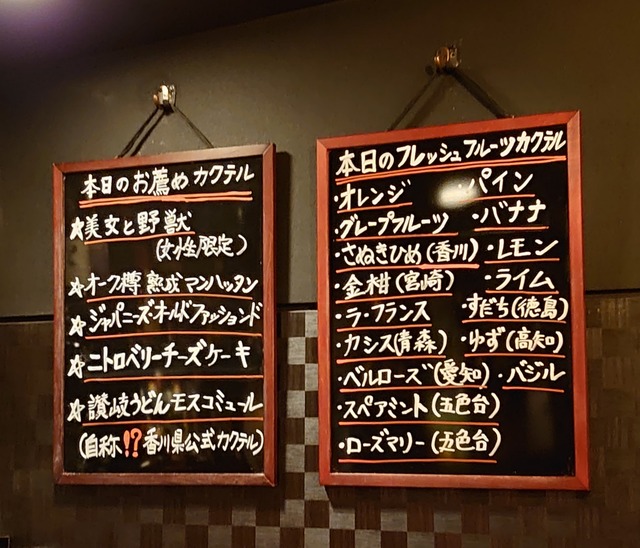 本日のお薦めカクテル
☆美女と野獣
(女性限定)
☆オーク樽 熟成マンハッタン
☆ジャパニーズオールドファッションド
☆ニトロベリーチーズケーキ
☆讃岐うどんモスコミュール
(自称⁉香川県公式カクテル)
本日のフレッシュフルーツカクテル
・オレンジ ・パイン
・グレープフルーツ ・バナナ
・さぬきひめ(香川) ・レモン
・金柑(宮崎) ・ライム
・ラ・フランス ・すだち(徳島)
・カシス(青森) ・ゆず(高知)
・ベルローズ(愛知) ・バジル
・スペアミント(五色台)
・ローズマリー(五色台)